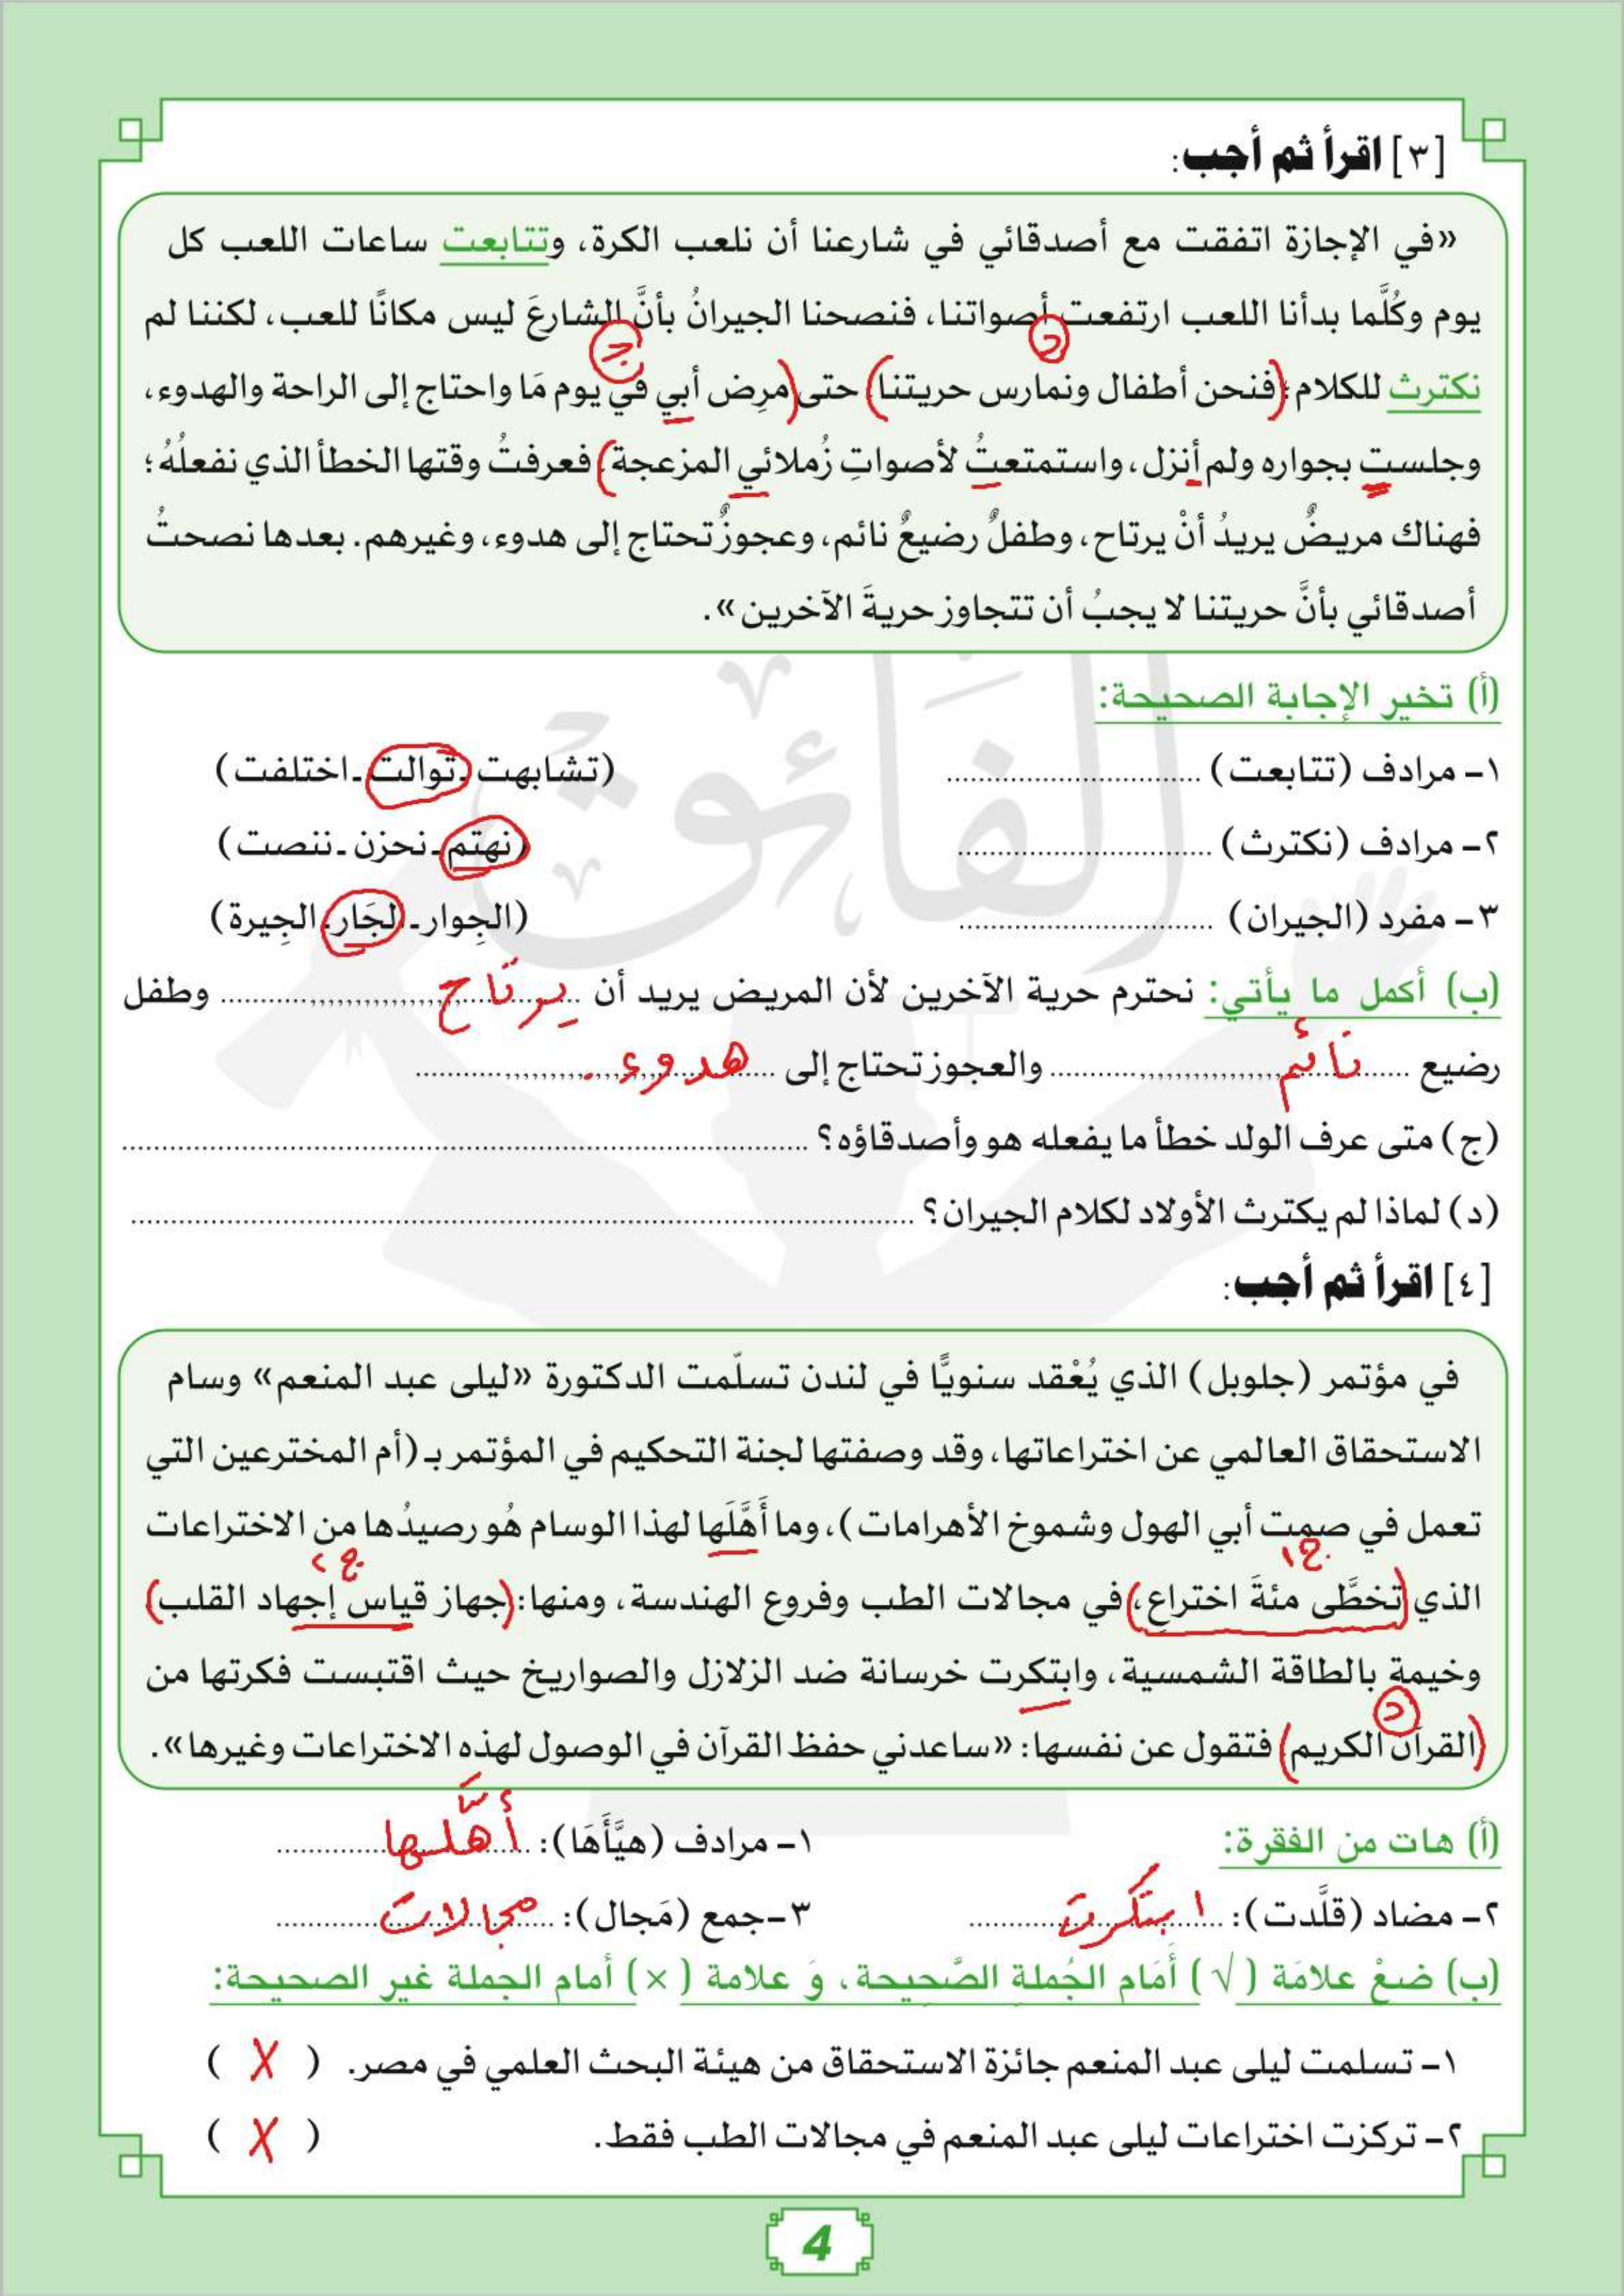 [٣] اقرأ ثم أجب:
«في الإجازة اتفقت مع أصدقائي في شارعنا أن نلعب الكرة، وتتابعت ساعات اللعب كل
يوم وكُلَّما بدأنا اللعب ارتفعت أصواتنا، فنصحنا الجيرانُ بأنَّ الشارعَ ليس مكانًا للعب، لكننا لم
نكترث للكلام؛ (فنحن أطفال ونمارس حريتنا) حتى (مرِض أبي في يوم مَا واحتاج إلى الراحة والهدوء،
وجلست بجواره ولم أنزل، واستمتعتُ لأصواتِ زُملائي المزعجة) فعرفتُ وقتها الخطأ الذي نفعلُهُ؛
فهناك مريضٌ يريدُ أنْ يرتاح، وطفلٌ رضيعٌ نائم، وعجوزٌ تحتاج إلى هدوء، وغيرهم. بعدها نصحتُ
أصدقائي بأنَّ حريتنا لا يجبُ أن تتجاوز حريةَ الآخرين».
د
ج
(أ) تخير الإجابة الصحيحة:
١- مرادف (تتابعت) .......... (تشابهت - توالت - اختلفت)
٢- مرادف (نكترث) .......... (نهتم - نحزن - ننصت)
٣- مفرد (الجيران) .......... (الجِوار - الجَار - الجِيرة)
(ب) أكمل ما يأتي: نحترم حرية الآخرين لأن المريض يريد أن يرتاح وطفل
رضيع نائم والعجوز تحتاج إلى هدوء.
(ج) متى عرف الولد خطأ ما يفعله هو وأصدقاؤه؟ ..........
(د) لماذا لم يكترث الأولاد لكلام الجيران؟ ..........
[٤] اقرأ ثم أجب:
في مؤتمر (جلوبل) الذي يُعْقد سنويًّا في لندن تسلّمت الدكتورة «ليلى عبد المنعم» وسام
الاستحقاق العالمي عن اختراعاتها، وقد وصفتها لجنة التحكيم في المؤتمر بـ (أم المخترعين التي
تعمل في صمت أبي الهول وشموخ الأهرامات)، وما أَهَّلَها لهذا الوسام هُو رصيدُها من الاختراعات
الذي (تخطَّى مئةَ اختراع)، في مجالات الطب وفروع الهندسة، ومنها: (جهاز قياس إجهاد القلب)
وخيمة بالطاقة الشمسية، وابتكرت خرسانة ضد الزلازل والصواريخ حيث اقتبست فكرتها من
(القرآن الكريم) فتقول عن نفسها: «ساعدني حفظ القرآن في الوصول لهذه الاختراعات وغيرها».
د
(أ) هات من الفقرة: ١- مرادف (هيَّأَهَا): أهَّلها
٢- مضاد (قلَّدت): ابتكرت ٣- جمع (مَجال): مجالات
(ب) ضعْ علامَة (√) أمَام الجُملةِ الصَّحِيحة، وَ علامة (×) أمام الجملة غير الصحيحة:
١- تسلمت ليلى عبد المنعم جائزة الاستحقاق من هيئة البحث العلمي في مصر. ( X )
٢- تركزت اختراعات ليلى عبد المنعم في مجالات الطب فقط. ( X )
4